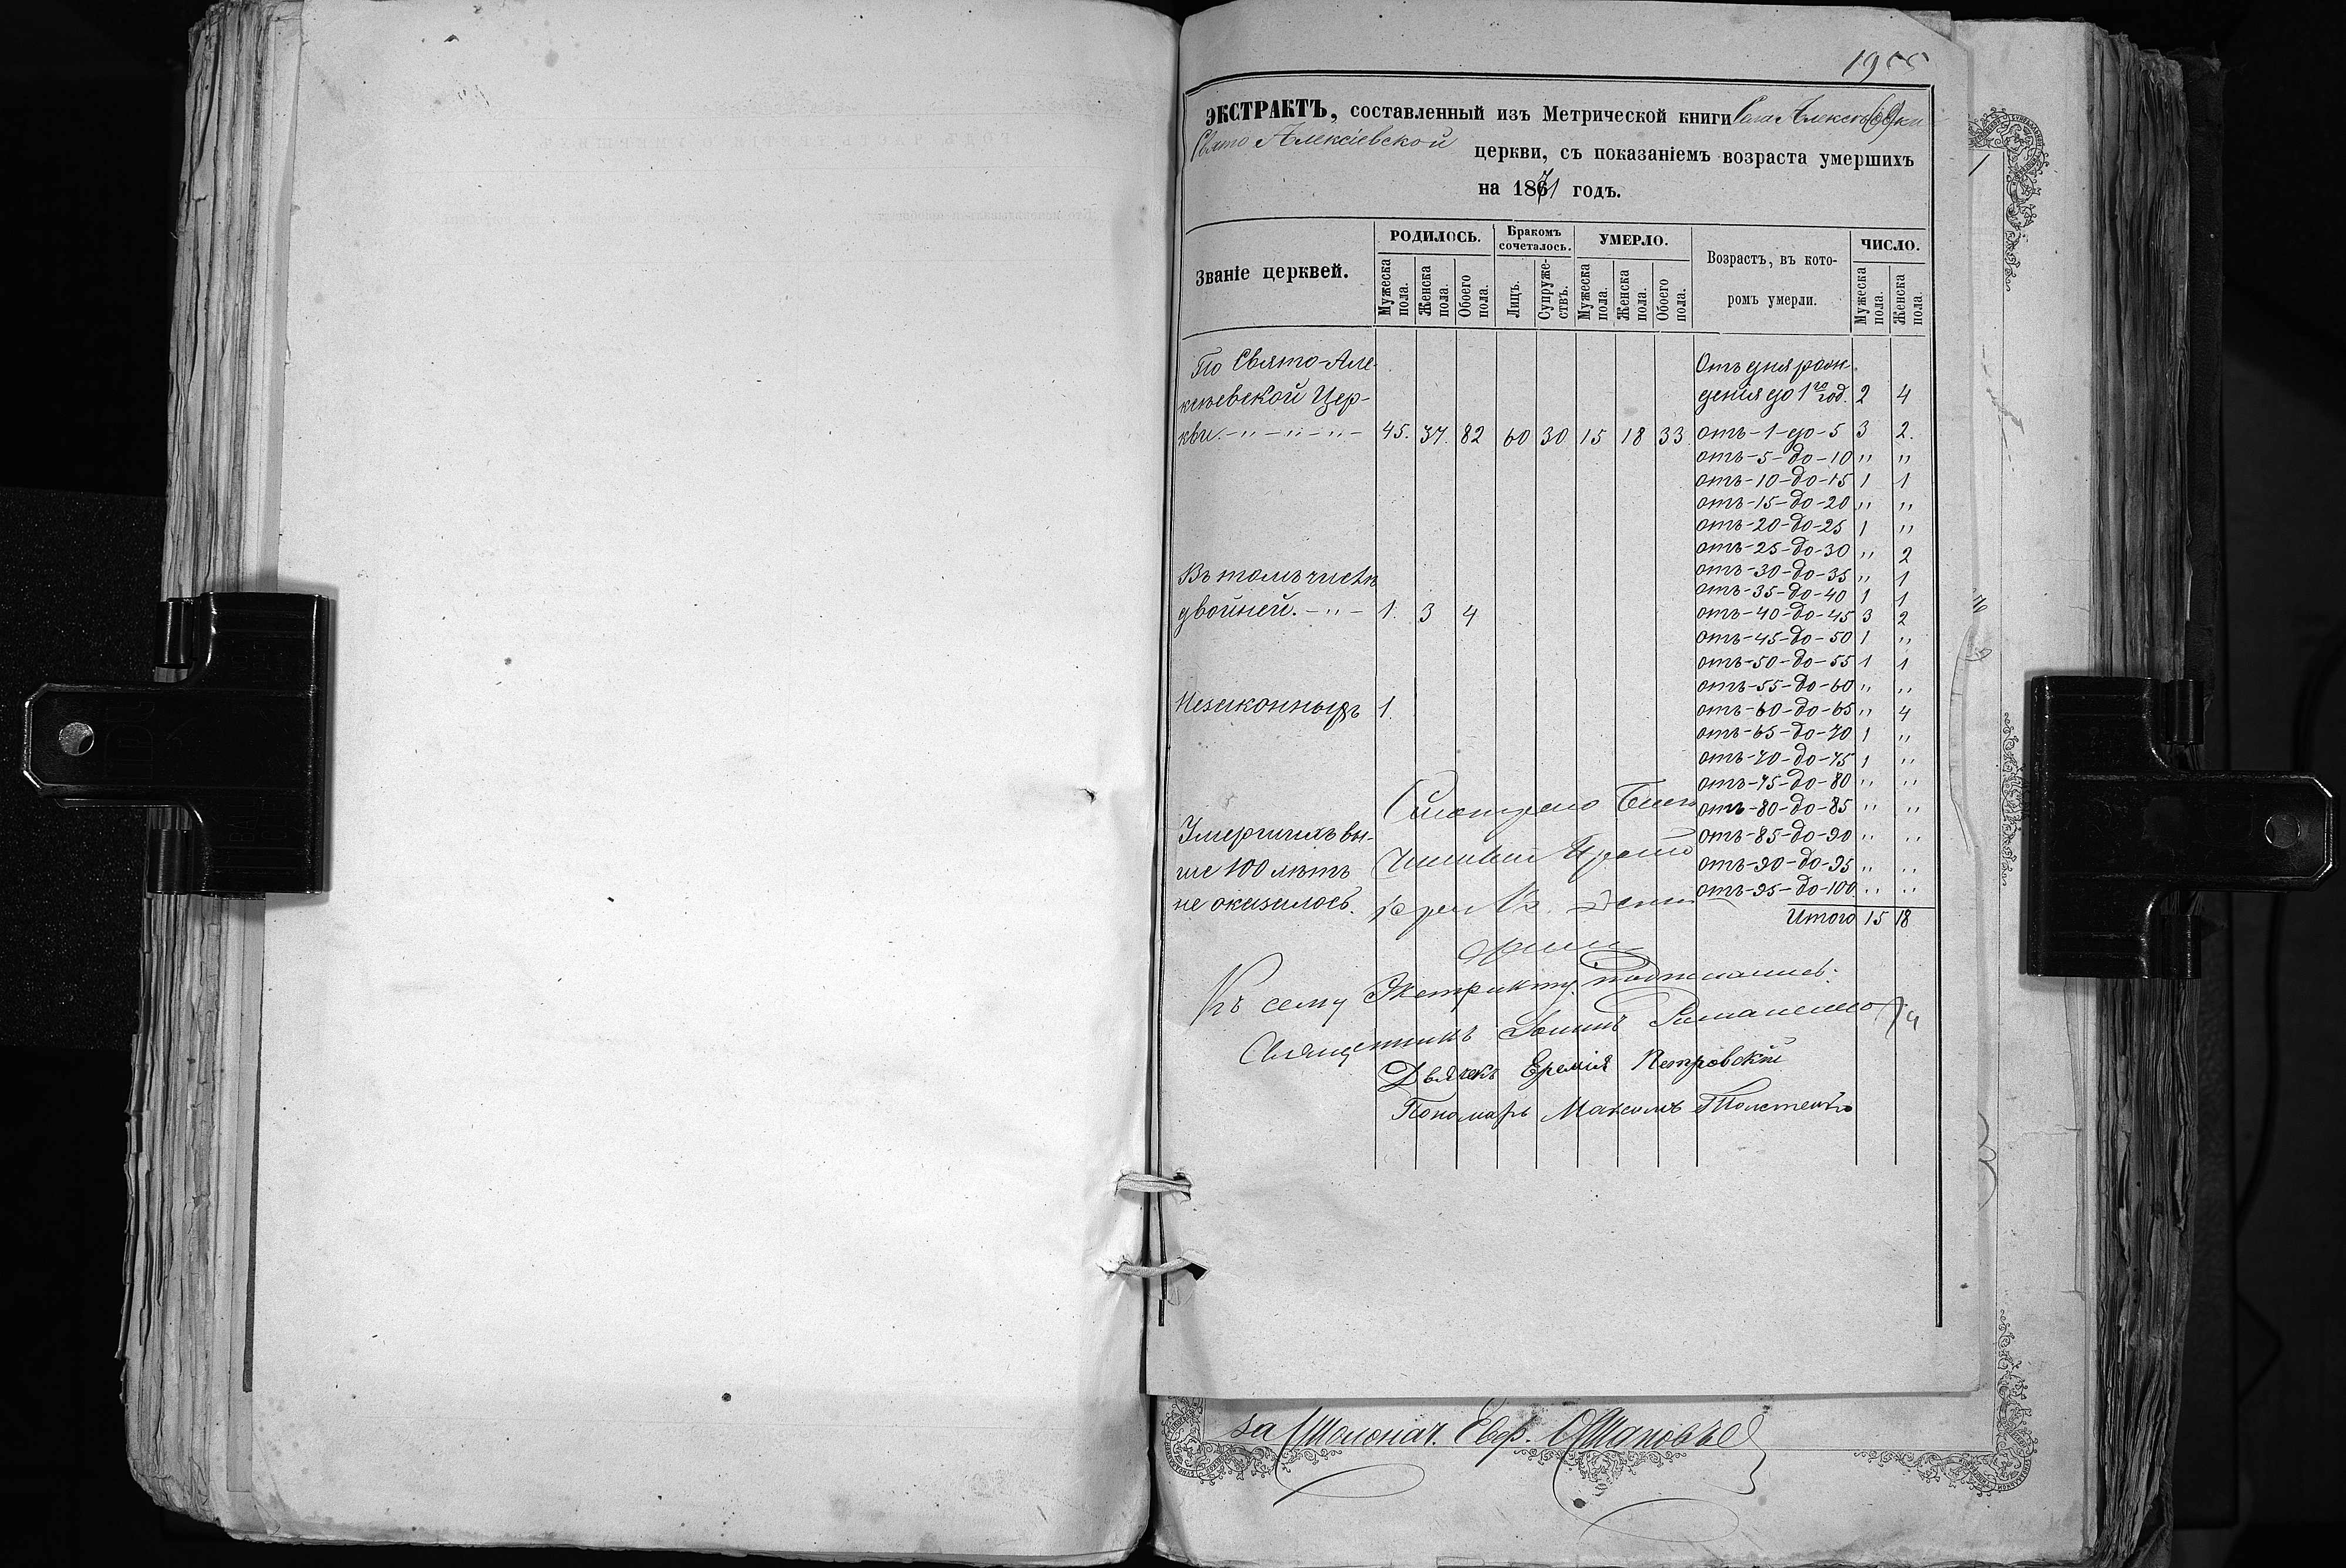 19
ЭКСТРАКТЪ, составленный изъ Метрической книги Села Алексѣевки
Свято Алексіевской церкви, съ показаніемъ возраста умершихъ
на 1871 годъ.
Званіе церквей. РОДИЛОСЬ. Бракомъ сочеталось. УМЕРЛО. Возрастъ, въ кото- ЧИСЛО.
Мужеска пола. Женска пола. Обоего пола. Лицъ. Супруже-ствъ. Мужеска пола. Женска пола. Обоего пола. ромъ умерли. Мужеска пола. Женска пола.
По Свято-Але- Отъ дня рож-
ксѣевской Цер- денія до 1го год. 2 4
кви. -"-"-"- 45. 37. 82 60 30 15 18 33. отъ-1-до-5 3 2.
отъ-5-до-10 " "
отъ-10-до-15 1 1
отъ-15-до-20 " "
отъ-20-до-25 1 "
отъ-25-до-30 " 2
Въ томъ числѣ отъ-30-до-35 " 1
отъ-35-до-40 1 1
двойней. -"- 1. 3 4 отъ-40-до-45 3 2
отъ-45-до-50 1 "
отъ-50-до-55 1 1
отъ-55-до-60 " "
Незаконныхъ 1. отъ-60-до-65 " 4
отъ-65-до-70 1 "
отъ-70-до-75 1 "
отъ-75-до-80 " "
отъ-80-до-85 " "
Умершихъ вы- отъ-85-до-90 " "
ше 100 лѣтъ отъ-90-до-95 " "
не оказалось. отъ-95-до-100. " "
Итого 15 18
Къ сему Экстракту подписались:
Священникъ Іоаннъ
Дьячекъ Еремія Петровскій
Пономарь Максимъ
за